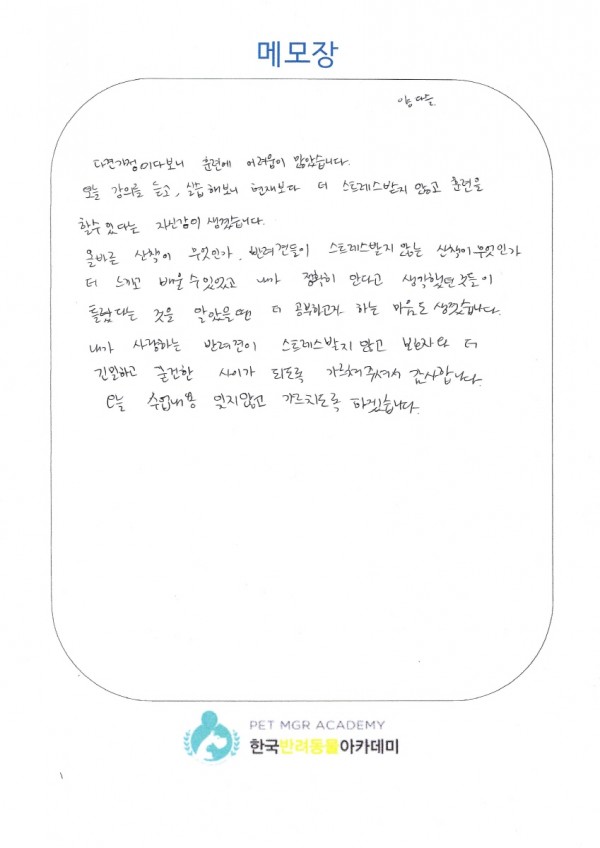 메모장
양다슬
다견가정이다보니 훈련에 어려움이 많았습니다.
오늘 강의를 듣고, 실습해보니 현재보다 더 스트레스받지 않고 훈련을
할수있다는 자신감이 생겼습니다.
올바른 산책이 무엇인가, 반려견들이 스트레스받지 않는 산책이 무엇인가
더 느끼고 배울수있었고 내가 정확히 안다고 생각했던것들이
틀렸다는 것을 알았을땐 더 공부하고자 하는 마음도 생겼습니다.
내가 사랑하는 반려견이 스트레스받지 않고 보호자와 더
친밀하고 굳건한 사이가 되도록 가르쳐주셔서 감사합니다.
오늘 수업내용 잊지않고 가르치도록 하겠습니다.
PET MGR ACADEMY
한국반려동물아카데미